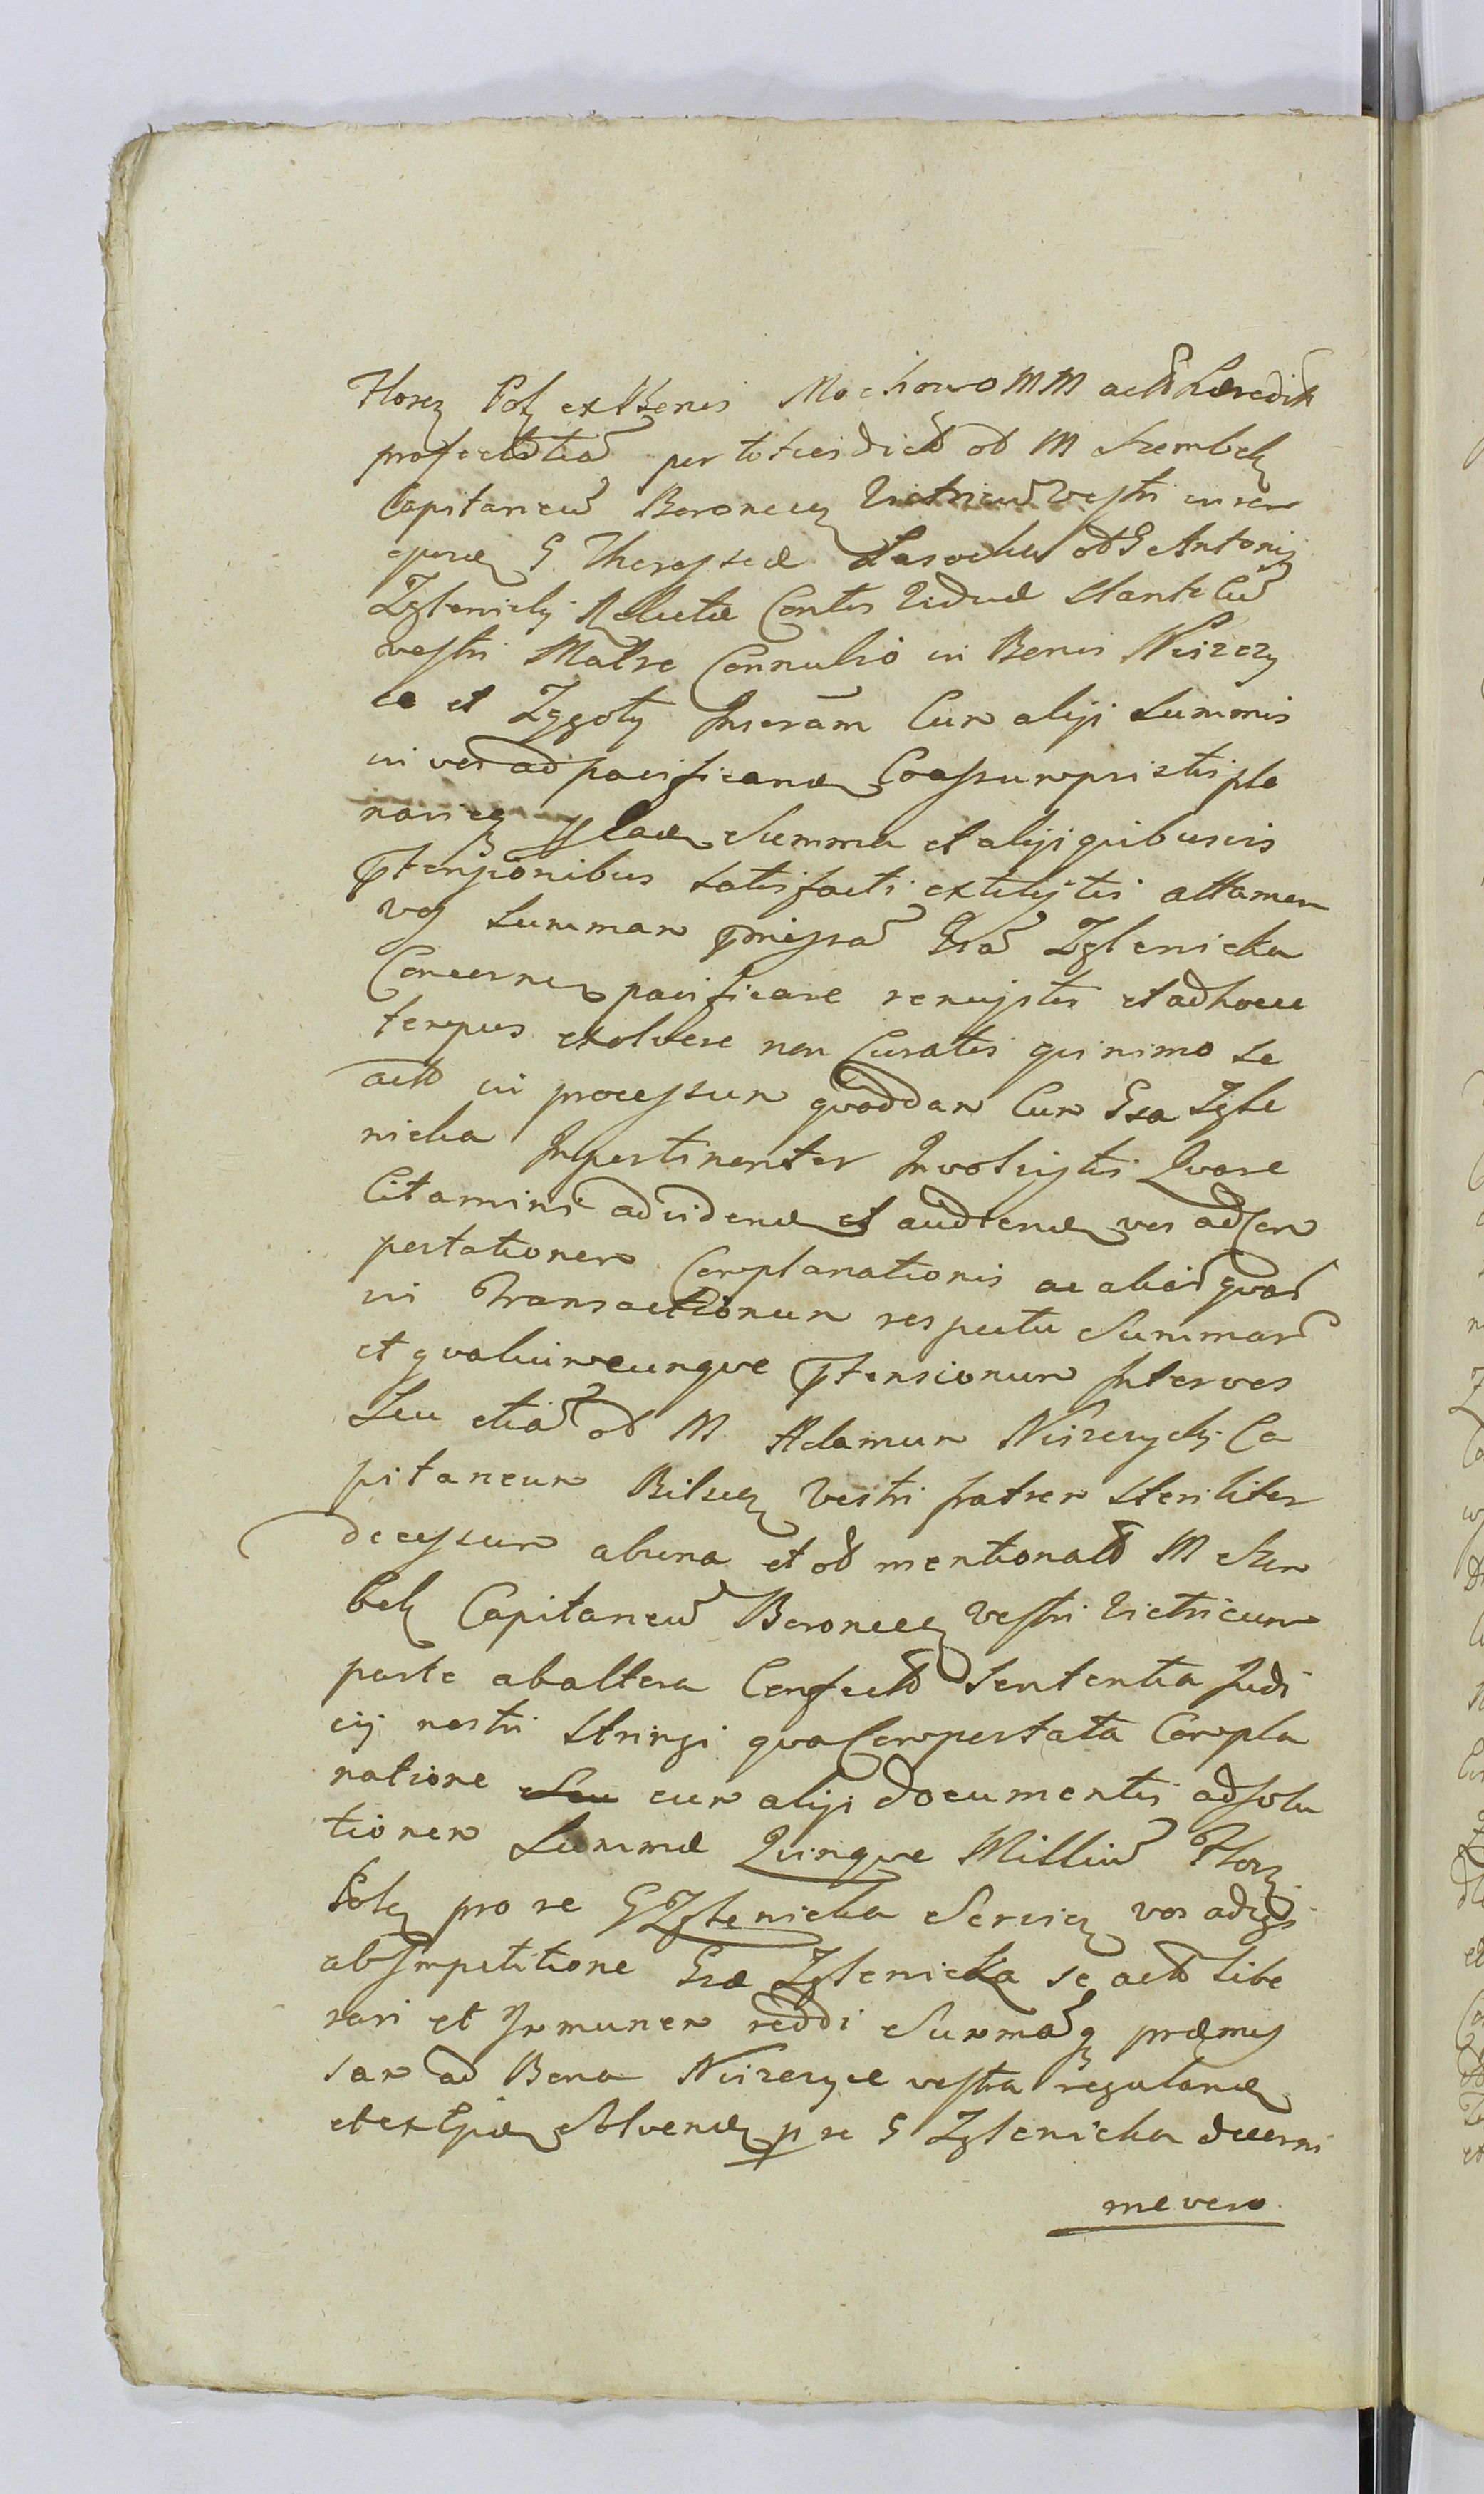 Florez Polz ex Benis Mochowo MM actō hæredit
profectūtiā per totiesdictō olō M Szembek
Capitaneū Boroneccz Victricū Vestri in rem
quæ G Theressæ Lasocka olō G Antonij
Zglenicki Relictæ Contis Viduæ stante Cū
vestri Matre Connubio in Benis Niszczy
ce et Zggoly Inscram Cum alijs summis
in vos ad pacificand Coassumpsistis ple
narieq summa et alijs quibusvis
Ptensionibus satisfacti extitistis attamen
vos summam pmissā Gsā Zglenicka
Concernen pacificare renuistis et adhocce
tempus exolvere non Curatis quinimo se
actō in processum quoddam Cum Gsa Zgle
nicka Impertinenter Involvistis Quare
Citamini ad videnđ et audienđ vos ad Com
portationem Complanationis ac aliar quar
vis Transactionum respectu Summar
et qvaliumcunque Ptensionum Inter vos
Seu etiā olō M Adamum Niszczycki Ca
pitaneum Bilscz Vestri fratrem steriliter
decessum ab una et olō mentionatō M Szem
bek Capitaneū Boroneccz Vestri Victricum
parte ab altera Confectō Sententia Judi
cij nostri stringi qva Comportata Compla
natione Seu cum alijs documentis ad solu
tionem Summæ Quinque Milliū Florz
Polz pro re G Zglenicka Servicz vos adigi
ab Impetitione Gsæ Zglenicka se actō libe
rari et Immunem reddi Summāq præmis
sam ad Bona Niszczyce vestra regulanđ
et ex Ijsđ Solvenđ p re G Zglenicka decerni
me vero